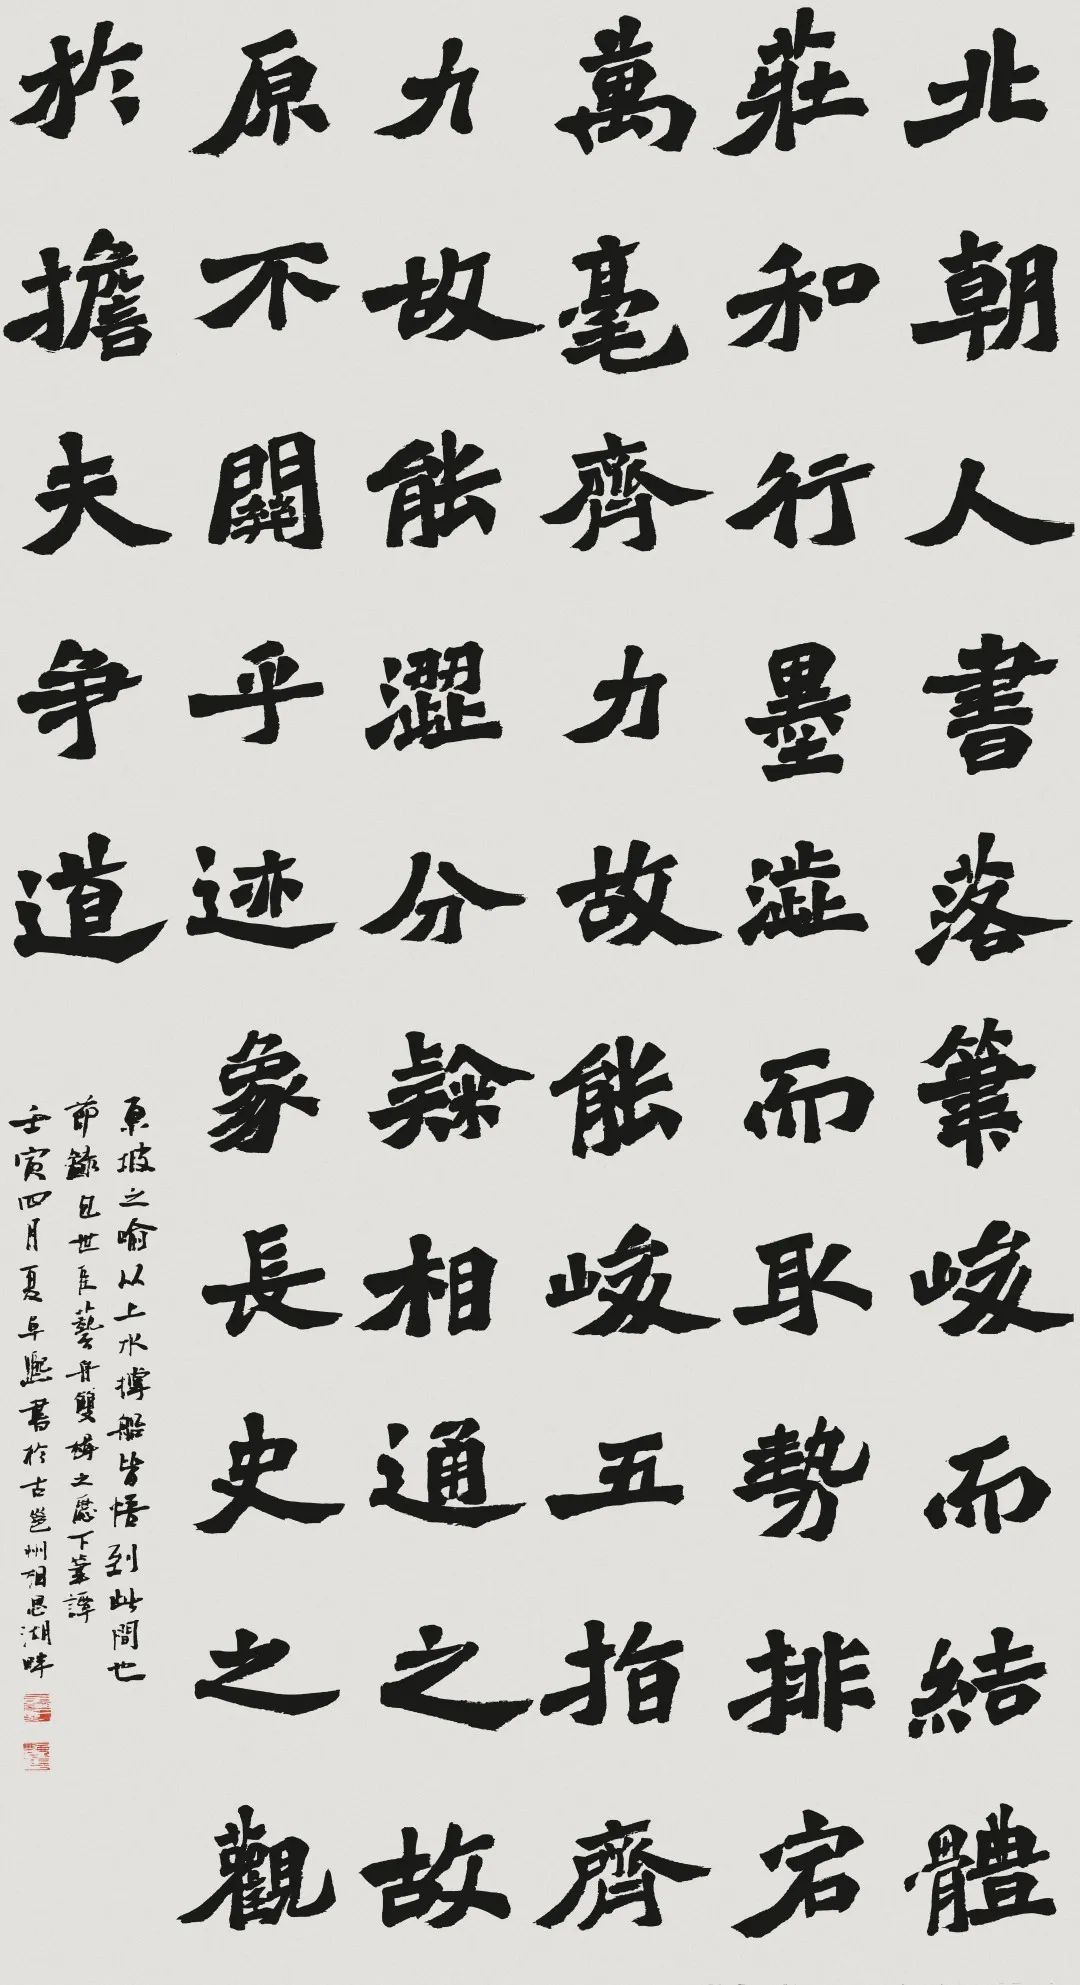 北朝人書落筆峻而結體
莊和行墨澁而取勢排宕
萬毫齊力故能峻五指齊
力故能澀分隸相通之故
原不關乎迹象長史之觀
於擔夫争道
東坡之喻以上水撐船皆悟到此間也
節錄包世臣藝舟雙楫之歷下筆譚
壬寅四月夏卓熙書於古邕州相思湖畔